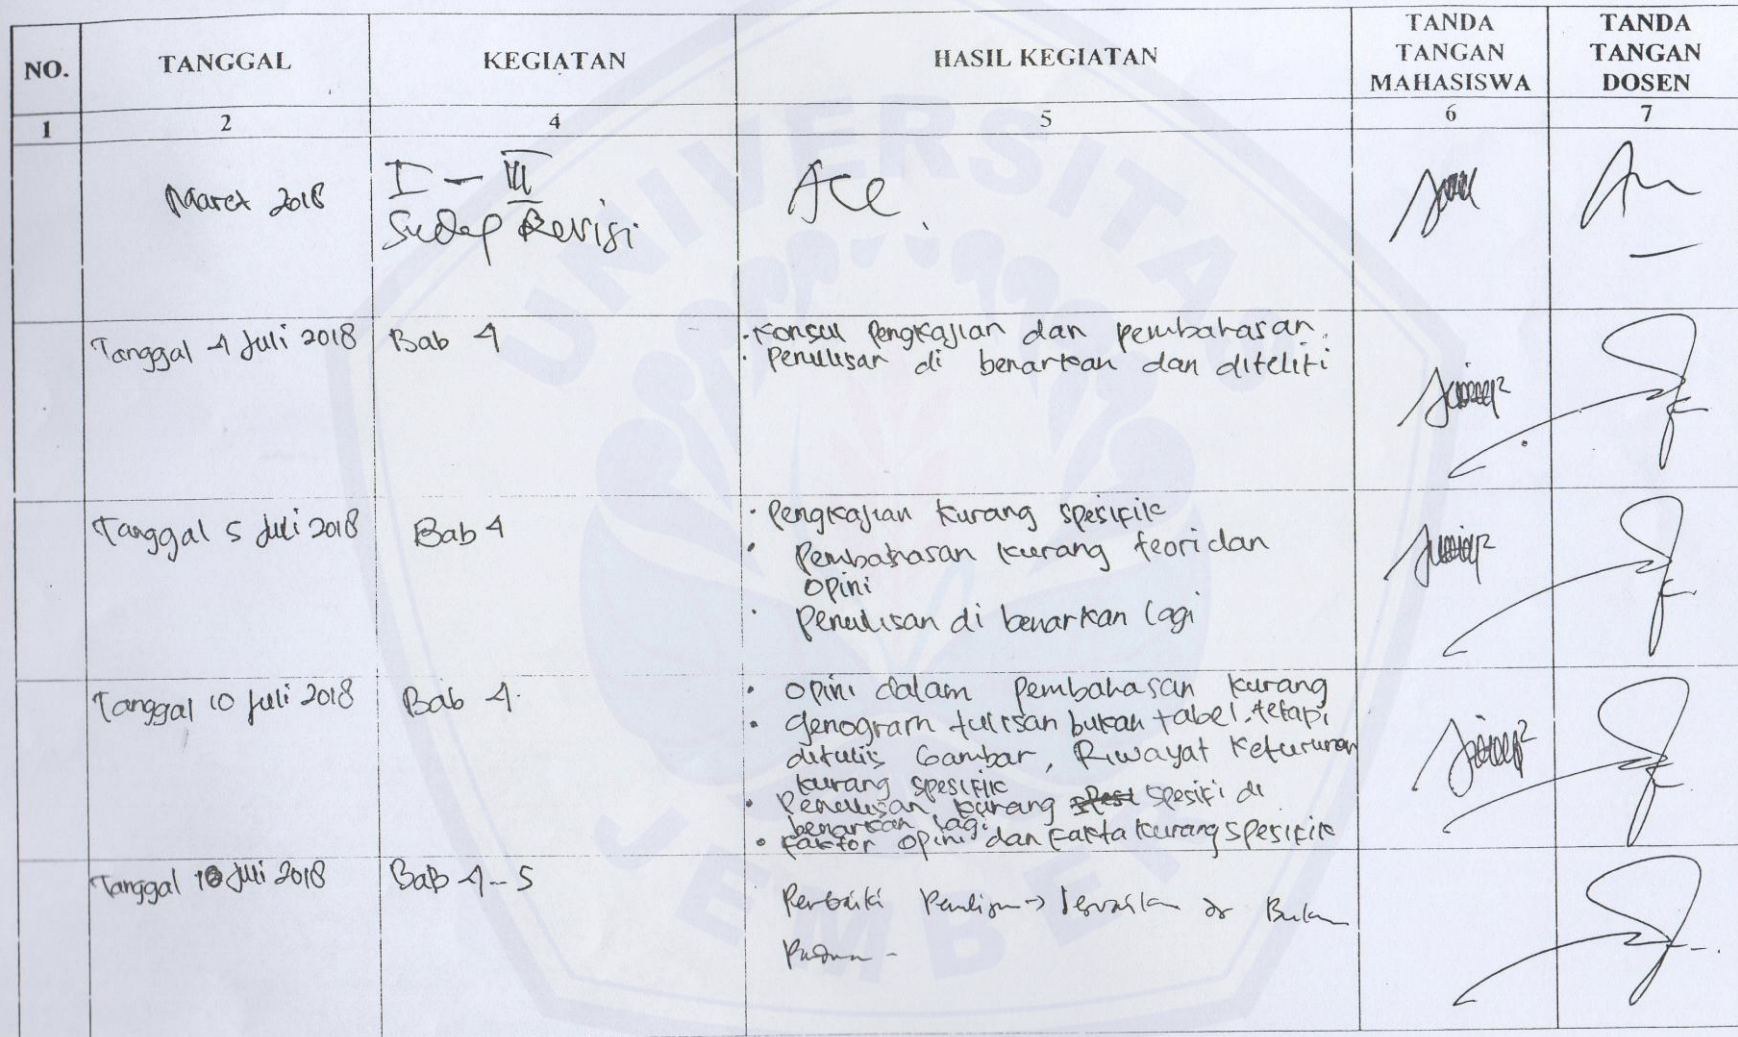 NO.
TANGGAL
KEGIATAN
HASIL KEGIATAN
TANDA
TANGAN
MAHASISWA
TANDA
TANGAN
DOSEN
1
2
4
5
6
7
Maret 2018
I - III
Revisi
Acc.
Tanggal 4 Juli 2018
Bab 4
• Konsul Pengkajian dan pembahasan.
• Penulisan di benarkan dan diteliti
Tanggal 5 Juli 2018
Bab 4
• Pengkajian kurang spesifik
• Pembahasan kurang teori dan
opini
• Penulisan di benarkan lagi
Tanggal 10 Juli 2018
Bab 4.
• opini dalam pembahasan kurang
• Genogram tulisan bukan tabel, tetapi
ditulis Gambar, Riwayat Keturunan
kurang spesifik
• Penulisan kurang spesifi di
benarkan lagi.
• Faktor opini dan fakta kurang spesifik
Tanggal Juli 2018
Bab 4 - 5
Perbaiki → Buku
UNIVERSITAS
JEMBER